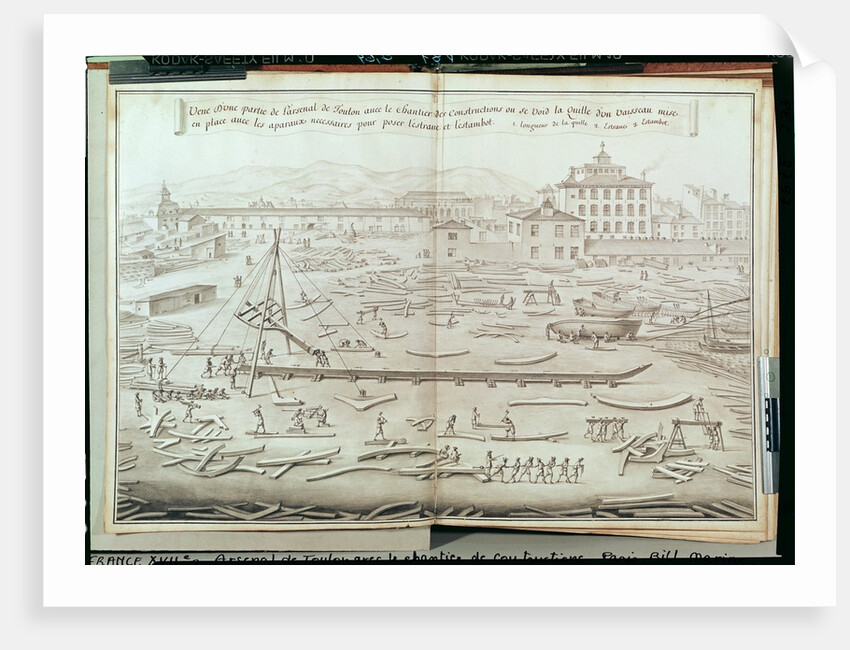 KODAK-SAFETY FILM
Veue D'vne partie de l'arsenal de Toulon auec le chantier des Constructions ou se Void la Quille d'vn Vaisseau mise
en place auec les aparaux necessaires pour poser l'estraue et l'estambot. 1. longueur de la quille 2. Estraues 3. Estambot.
FRANCE XVIIe Arsenal de Toulon avec le chantier de constructions Paris Bibl. Marine